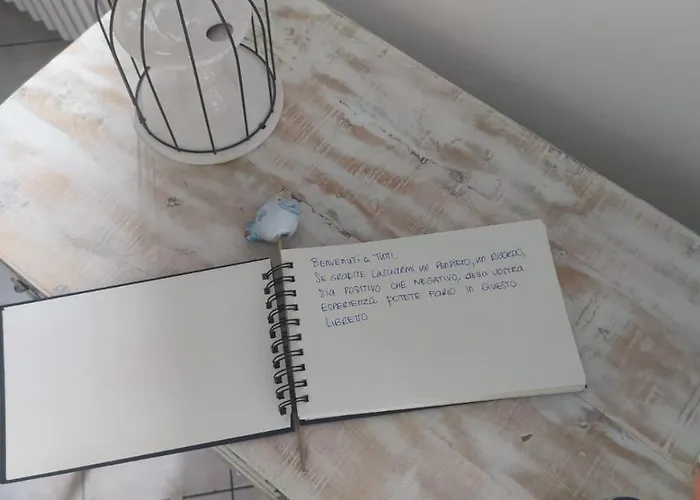 BENVENUTI A TUTTI.
SE GRADITE LASCIARMI UN PENSIERO, UN RICORDO,
SIA POSITIVO CHE NEGATIVO, della VOSTRA
ESPERIENZA POTETE FARLO IN QUESTO
LIBRETTO